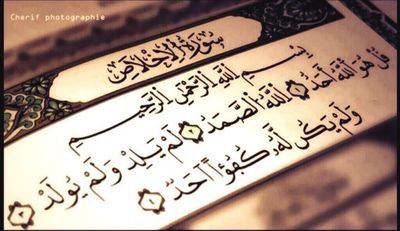 Cherif photographie
سُورَةُ الإِخْلَاصِ
بِسْمِ اللَّهِ الرَّحْمَٰنِ الرَّحِيمِ
قُلْ هُوَ اللَّهُ أَحَدٌ ١ اللَّهُ الصَّمَدُ ٢ لَمْ يَلِدْ وَلَمْ يُولَدْ ٣
وَلَمْ يَكُن لَّهُ كُفُوًا أَحَدٌ ٤